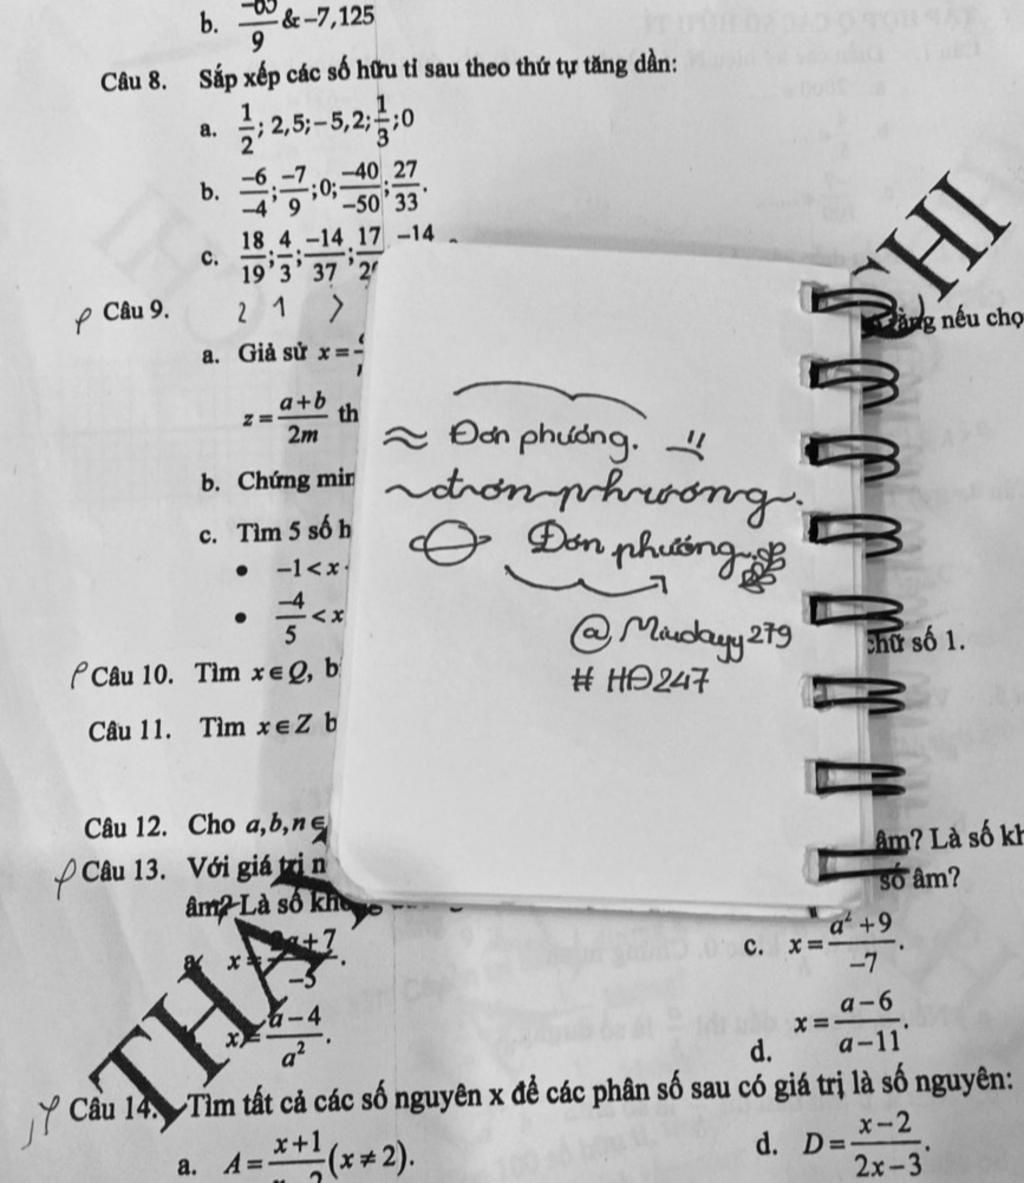 b. 9 & −7,125
Câu 8. Sắp xếp các số hữu tỉ sau theo thứ tự tăng dần:
a. 1/2; 2,5; −5,2; 1/3; 0
b. −6/−4; −7/9; 0; −40/−50; 27/33.
c. 18/19; 4/3; −14/37; 17 −14
Câu 9. 2 1 >
ằng nếu chọ
a. Giả sử x =
z = a+b/2m th
b. Chứng min
c. Tìm 5 số h
• −1 < x
• −4/5 < x
≈ Đơn phương.
đơn phương.
Đơn phương
@ Miudayy279
# HĐ247
chữ số 1.
Câu 10. Tìm x ∈ Q, b
Câu 11. Tìm x ∈ Z b
Câu 12. Cho a, b, n ∈
âm? Là số kh
Câu 13. Với giá trị n
số âm?
âm? Là số kh
a. x = +7/−5.
c. x = a² + 9/−7.
x = a − 4/a².
d. x = a − 6/a − 11.
Câu 14. Tìm tất cả các số nguyên x để các phân số sau có giá trị là số nguyên:
a. A = x+1 (x ≠ 2).
d. D = x − 2/2x − 3.
THA
CHI